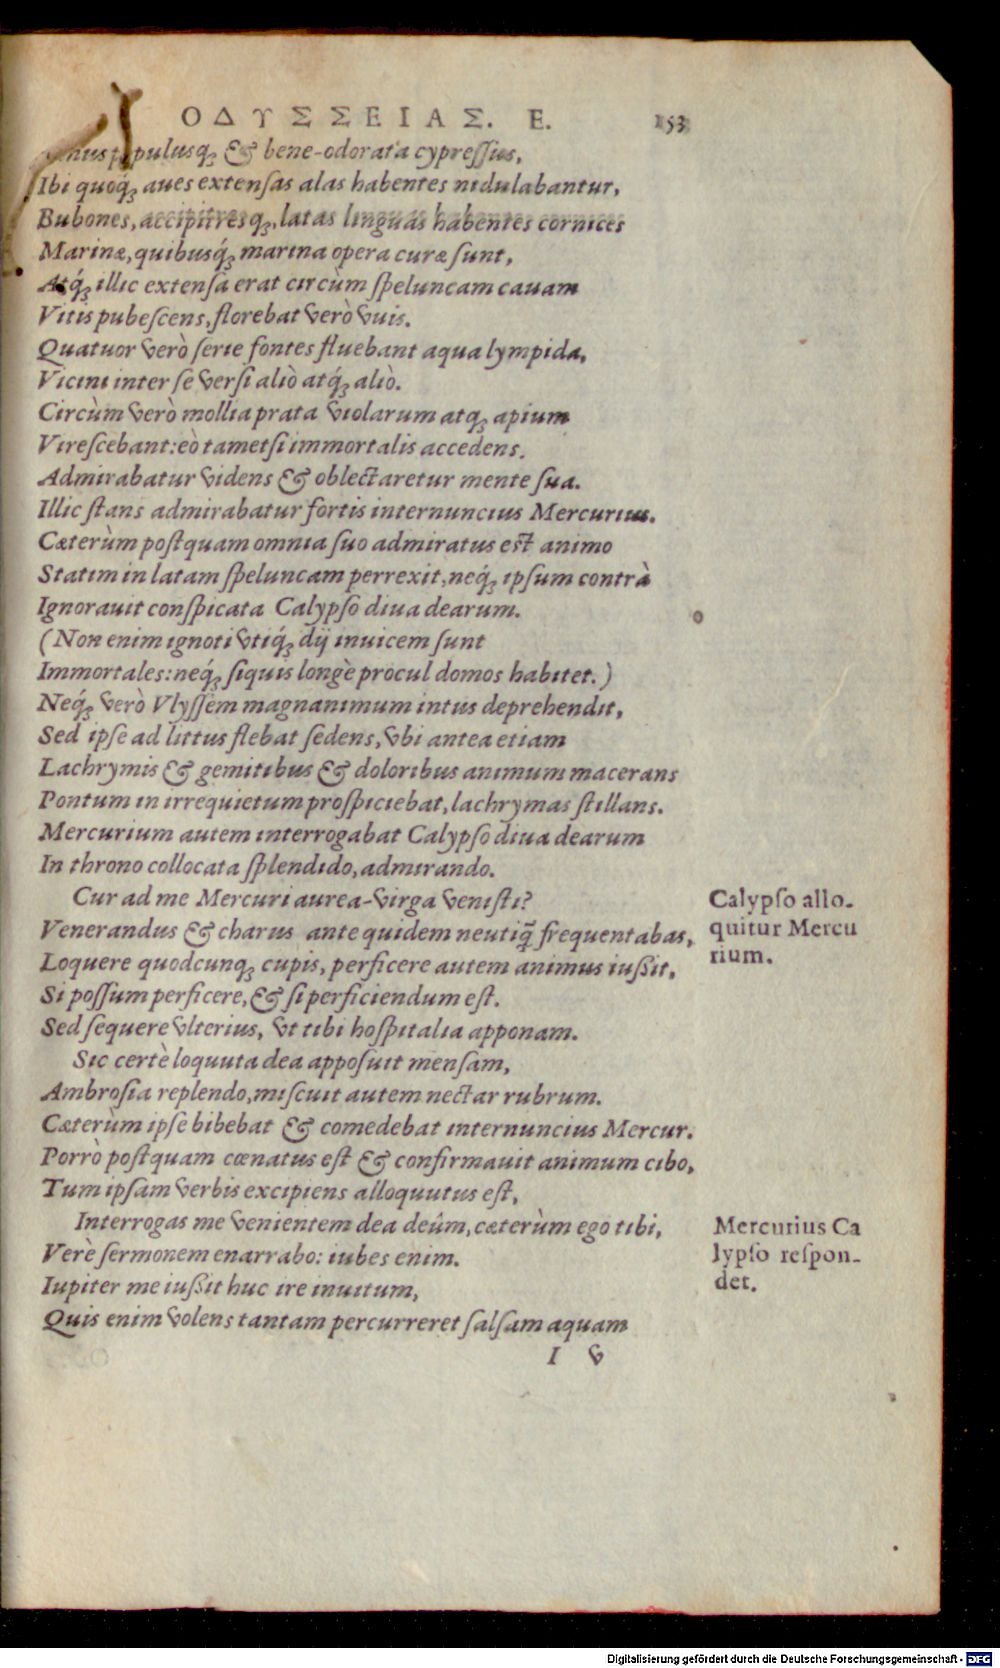 ΟΔΥΣΣΕΙΑΣ. Ε. 153
pulusq́ꝫ & bene-odorata cypressus,
Ibi quoq́ꝫ aues extensas alas habentes nidulabantur,
Bubones, accipitresqꝫ, latas linguas habentes cornices
Marinæ, quibusq́ꝫ marina opera curæ sunt,
Atq́ꝫ illic extensa erat circùm speluncam cauam
Vitis pubescens, florebat verò vuis.
Quatuor verò serie fontes fluebant aqua lympida,
Vicini inter se versi aliò atq́ꝫ aliò.
Circùm verò mollia prata violarum atqꝫ apium
Virescebant: eò tametsi immortalis accedens.
Admirabatur videns & oblectaretur mente sua.
Illic stans admirabatur fortis internuncius Mercurius.
Cæterùm postquam omnia suo admiratus est animo
Statim in latam speluncam perrexit, neq́ꝫ ipsum contrà
Ignorauit conspicata Calypso diua dearum.
(Non enim ignoti vtiq́ꝫ dij inuicem sunt
Immortales: neq́ꝫ siquis longè procul domos habitet.)
Neq́ꝫ verò Vlyssem magnanimum intus deprehendit,
Sed ipse ad littus flebat sedens, vbi antea etiam
Lachrymis & gemitibus & doloribus animum macerans
Pontum in irrequietum prospiciebat, lachrymas stillans.
Mercurium autem interrogabat Calypso diua dearum
In throno collocata splendido, admirando.
Cur ad me Mercuri aurea-virga venisti?
Venerandus & charus ante quidem neutiq̃ frequentabas,
Loquere quodcunqꝫ cupis, perficere autem animus iußit,
Si possum perficere, & si perficiendum est.
Sed sequere vlterius, vt tibi hospitalia apponam.
Sic certè loquuta dea apposuit mensam,
Ambrosia replendo, miscuit autem nectar rubrum.
Cæterùm ipse bibebat & comedebat internuncius Mercur.
Porrò postquam cœnatus est & confirmauit animum cibo,
Tum ipsam verbis excipiens alloquutus est,
Interrogas me venientem dea deûm, cæterùm ego tibi,
Verè sermonem enarrabo: iubes enim.
Iupiter me iußit huc ire inuitum,
Quis enim volens tantam percurreret salsam aquam
I v
Calypso allo-
quitur Mercu
rium.
Mercurius Ca
lypso respon-
det.
Digitalisierung gefördert durch die Deutsche Forschungsgemeinschaft - DFG